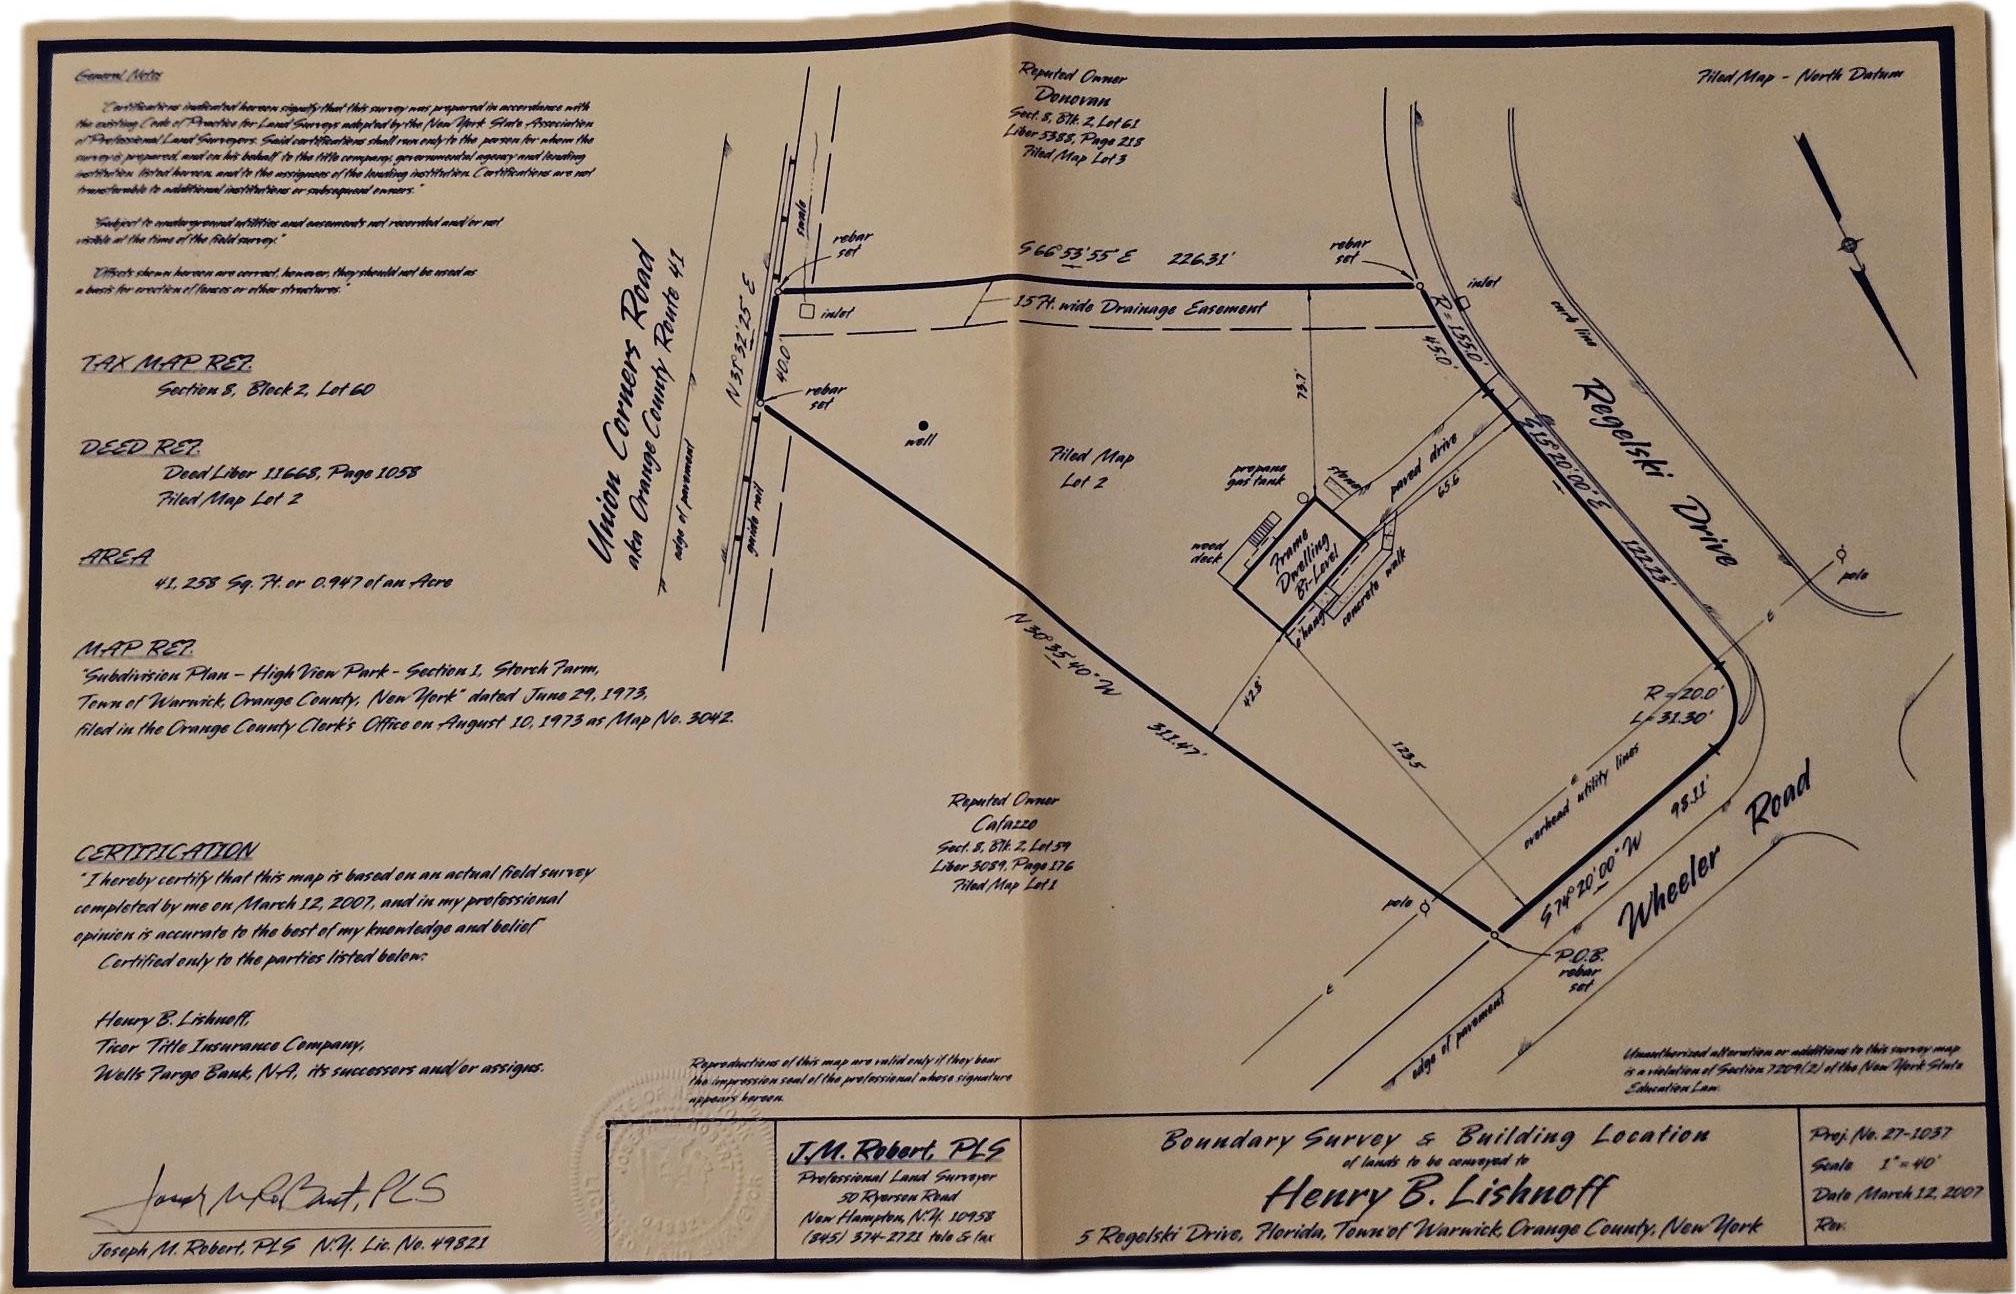 General Notes
"Certifications indicated hereon signify that this survey was prepared in accordance with
the existing Code of Practice for Land Surveys adopted by the New York State Association
of Professional Land Surveyors. Said certifications shall run only to the person for whom the
survey is prepared, and on his behalf to the title company, governmental agency and lending
institution listed hereon, and to the assignees of the lending institution. Certifications are not
transferable to additional institutions or subsequent owners."
"Subject to underground utilities and easements not recorded and/or not
visible at the time of the field survey."
"Offsets shown hereon are correct, however, they should not be used as
a basis for erection of fences or other structures."
TAX MAP REF.
Section 8, Block 2, Lot 60
DEED REF.
Deed Liber 11668, Page 1058
Filed Map Lot 2
AREA
41,258 Sq. Ft. or 0.947 of an Acre
MAP REF.
"Subdivision Plan - High View Park - Section 1, Storch Farm,
Town of Warwick, Orange County, New York" dated June 29, 1973,
filed in the Orange County Clerk's Office on August 10, 1973 as Map No. 3042.
CERTIFICATION
"I hereby certify that this map is based on an actual field survey
completed by me on March 12, 2007, and in my professional
opinion is accurate to the best of my knowledge and belief"
Certified only to the parties listed below:
Henry B. Lishnoff,
Ticor Title Insurance Company,
Wells Fargo Bank, N.A., its successors and/or assigns.
Joseph M. Robert, PLS
Joseph M. Robert, PLS N.Y. Lic. No. 49821
Reputed Owner
Donovan
Sect. 8, Blk. 2, Lot 61
Liber 5388, Page 218
Filed Map Lot 3
Filed Map - North Datum
Union Corners Road
aka Orange County Route 41
edge of pavement
guide rail
swale
rebar
set
N 31° 32' 25" E
40.0'
inlet
rebar
set
well
S 66° 53' 55" E 226.31'
15 Ft. wide Drainage Easement
rebar
set
inlet
R = 155.0'
45.0'
curb line
Regelski Drive
S 15° 20' 00" E
122.23'
73.7'
Filed Map
Lot 2
propane
gas tank
stone
paved drive
65.6
wood
deck
Frame
Dwelling
Bi-Level
o'hang
concrete walk
42.8'
123.5
N 30° 35' 40" W
311.47'
pole
E
R = 20.0'
L = 31.30'
overhead utility lines
E
98.11'
S 74° 20' 00" W
Wheeler Road
pole
E
P.O.B.
rebar
set
edge of pavement
Reputed Owner
Cafazzo
Sect. 8, Blk. 2, Lot 59
Liber 3089, Page 176
Filed Map Lot 1
Reproductions of this map are valid only if they bear
the impression seal of the professional whose signature
appears hereon.
Unauthorized alteration or additions to this survey map
is a violation of Section 7209(2) of the New York State
Education Law.
J.M. Robert, PLS
Professional Land Surveyor
50 Ryerson Road
New Hampton, N.Y. 10958
(845) 374-2721 tele & fax
Boundary Survey & Building Location
of lands to be conveyed to
Henry B. Lishnoff
5 Regelski Drive, Florida, Town of Warwick, Orange County, New York
Proj. No. 27-1037
Scale 1" = 40'
Date March 12, 2007
Rev.